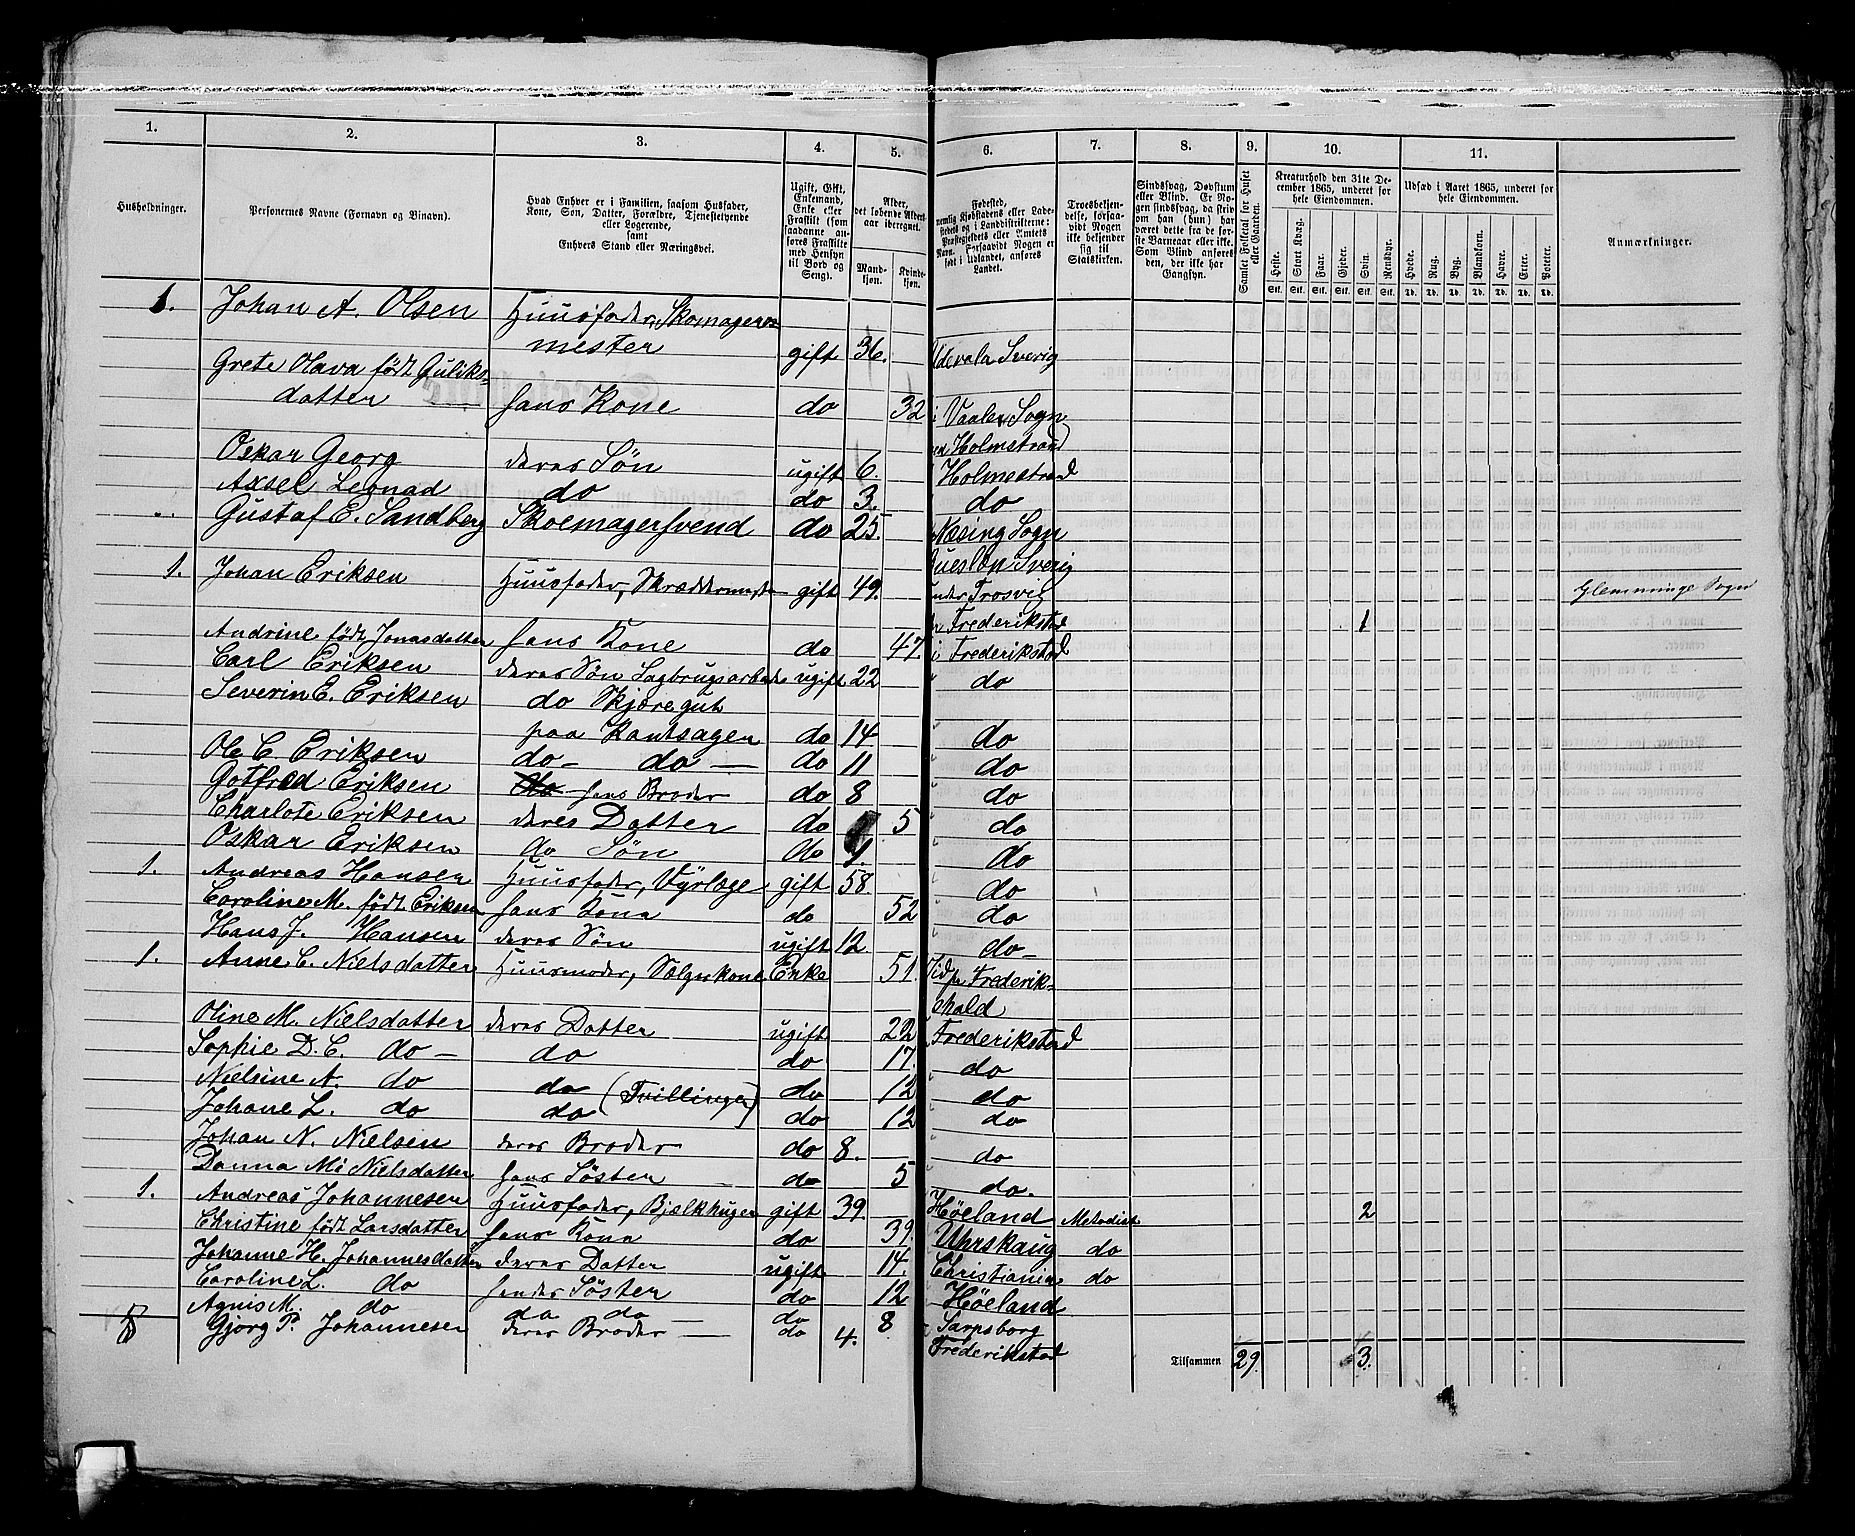 1. 2. 3. 4. 5. 6. 7. 8. 9. 10. 11.
Husholdninger.
Personernes Navne (Fornavn og Binavn).
Hvad Enhver er i Familien, saasom Husfader, Kone, Søn, Datter, Forældre, Tjenestetyende eller Logerende, samt Enhvers Stand eller Næringsvei.
Ugift, Gift, Enkemand, Enke eller Fraskilt (som saadanne anføres Fraskilte med Hensyn til Bord og Seng).
Alder, det løbende Aldersaar iberegnet.
Mandkjøn. Kvindekjøn.
Fødested, nemlig Kjøbstadens eller Ladestedets og i Landdistrikterne: Præstegjeldets eller Amtets Navn. Forsaavidt Nogen er født i Udlandet, anføres Landet.
Troesbekjendelse, forsaavidt Nogen ikke bekjender sig til Statskirken.
Sindssvag, Døvstum eller Blind. Er Nogen sindssvag, da skriv om han (hun) har været dette fra de første Barneaar eller ikke. Som Blind ansøres den, der ikke har Gangsyn.
Samlet Folketal for Huset eller Gaarden.
Kreaturhold den 31te December 1865, underet for hele Eiendommen.
Heste. Stort Kvæg. Faar. Gjeder. Svin. Rensdyr.
Udsæd i Aaret 1865, underet for hele Eiendommen.
Hvede. Rug. Byg. Blandkorn. Havre. Erter. Poteter.
Anmærkninger.
1. Johan A. Olsen Huusfader, Skomager=
mester gift 36. Udevala Sverig
Grete Olava født Guliks=
datter hans Kone do 32 i Vaaler Sogn
Holmstrand
Oskar Georg deres Søn ugift 6. Holmestrand
Axsel Leonad do do 3. do
Gustaf E. Sandberg Skoemagersvend do 25. Næsing Sogn
Sverig
1. Johan Eriksen Huusfader, Skræddermester gift 49. under Trosvig Glemminge Sogn
Frederikstad 1
Andrine født Jonasdatter hans Kone do 47. i Frederikstad
Carl Eriksen deres Søn Sagbrugsarbeder ugift 22 " do
Severin E. Eriksen do Skjæregut
paa Kantsagen do 14 " do
Ole C. Eriksen do - do - do 11 " do
Gotfred Eriksen do hans Broder do 8 " do
Charlote Eriksen deres Datter do 5 " do
Oskar Eriksen do Søn do 1. " do
1. Andreas Hansen Huusfader, gift 58. " do
Caroline M. født Eriksen hans Kone do 52 " do
Hans J. Hansen deres Søn ugift 12. " do
1. Anne C. Nielsdatter Huusmoder, Sælgerkone Enke 51. Id Frederiks=
hald
Oline M. Nielsdatter deres Datter ugift 22 Frederikstad
Sophie D. C. do - do do 17. " do
Nielsine A. do do (Tvillinger) do 12 " do
Johane L. do do do 12 " do
Johan N. Nielsen deres Broder do 8. " do
Danna Mi Nielsdatter hans Söster do 5 " do.
1. Andreas Johannesen Huusfader, Bjelkhuger gift 39. Höeland Metodist 2
Christine født Larsdatter hans Kone do 39. Uhrskaug do
Johanne H. Johannesdatter deres Datter ugift 14. Christiania do
Caroline L. do hendes Söster do 12 Höeland
Agnis M. do do do - do 8 Sarpsborg
Gjorg P. Johannesen deres Broder do 4. Frederikstad
Tilsammen 29. 3.